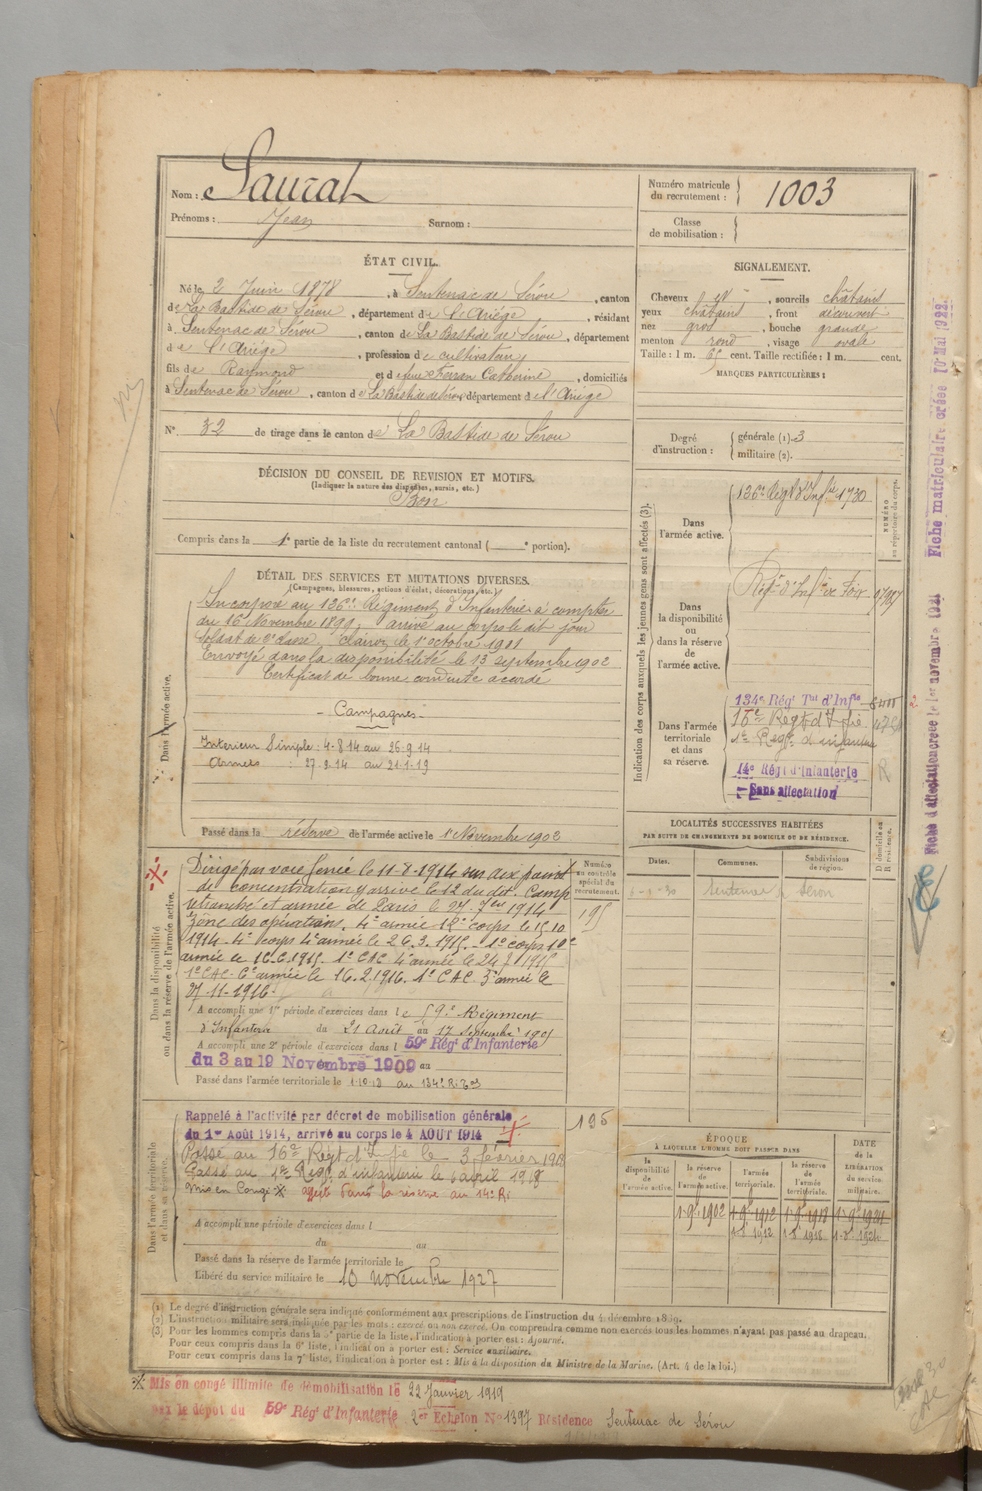 Nom : Saurat
Prénoms : Jean Surnom :
Numéro matricule du recrutement : 1003
Classe de mobilisation :
ÉTAT CIVIL.
Né le 2 Juin 1878, à Sentenac de Sérou, canton
de La Bastide de Sérou, département de l'Ariège, résidant
à Sentenac de Sérou, canton de La Bastide de Sérou, département
de l'Ariège, profession de cultivateur
fils de Raymond et de feue Ferran Catherine, domiciliés
à Sentenac de Sérou, canton de La Bastide de Sérou département de l'Ariège
N° 32 de tirage dans le canton de La Bastide de Sérou
SIGNALEMENT.
Cheveux et, sourcils châtains
yeux châtains, front découvert
nez gros, bouche grande
menton rond, visage ovale
Taille : 1 m. 65 cent. Taille rectifiée : 1 m. cent.
MARQUES PARTICULIÈRES :
DÉCISION DU CONSEIL DE REVISION ET MOTIFS.
(Indiquer la nature des dispenses, sursis, etc.)
Bon
Compris dans la 1e partie de la liste du recrutement cantonal ( e portion).
Degré d'instruction : générale (1). 3
militaire (2).
DÉTAIL DES SERVICES ET MUTATIONS DIVERSES.
(Campagnes, blessures, actions d'éclat, décorations, etc.)
Dans l'armée active.
Incorporé au 136e Régiment d'Infanterie à compter
du 16 Novembre 1899, arrivé au corps le dit jour
Soldat de 2e classe. Clairon le 1er octobre 1901
Envoyé dans la disponibilité le 13 septembre 1902
Certificat de bonne conduite accordé
- Campagnes -
Intérieur Simple : 4.8.14 au 26.9.14
Armées : 27.9.14 au 21.1.19
Passé dans la réserve de l'armée active le 1er Novembre 1902
Indication des corps auxquels les jeunes gens sont affectés (3).
NUMÉRO au répertoire du corps.
Dans l'armée active.
136e Régt d'Infie 1730
Dans la disponibilité ou dans la réserve de l'armée active.
Régt d'Infie de Foix
Dans l'armée territoriale et dans sa réserve.
134e Régt Tal d'Infie
16e Regt d'Infie
1er Regt d'infanterie
14e Régt d'Infanterie
Sans affectation
Dans la disponibilité ou dans la réserve de l'armée active.
Numéro au contrôle spécial du recrutement.
195
Dirigé par voie ferrée le 11-8-1914 sur dix point
de concentration y arrivé le 12 du dit. Camp
retranché et armée de Paris le 27 7bre 1914
Zone des opérations. 4e armée 12e corps le 15 10
1914 - 4e corps 4e armée le 26.3.1915. - 1er corps 10e
armée le 16.6.1915. 1er CAC 4e armée le 24 8 1915
1er CAC - 6e armée le 16.2.1916. 1er CAC 3e armée le
27-11-1916.
A accompli une 1re période d'exercices dans le 59e Régiment
d'Infanterie du 21 Août au 17 Septembre 1905
A accompli une 2e période d'exercices dans l 59e Régt d'Infanterie
du 3 au 19 Novembre 1909 au
Passé dans l'armée territoriale le 1.10.13 au 134e R. Ter
LOCALITÉS SUCCESSIVES HABITÉES
PAR SUITE DE CHANGEMENTS DE DOMICILE OU DE RÉSIDENCE.
Dates. Communes. Subdivisions de région. D domicile ou R résidence.
Sentenac de Sérou
Dans l'armée territoriale et dans sa réserve.
Rappelé à l'activité par décret de mobilisation générale
du 1er Août 1914, arrivé au corps le 4 AOUT 1914
196
Passé au 16e Régt d'Infie le 3 février 1918
Passé au 1er Régt d'infanterie le 6 avril 1918
Mis en Congé affecté dans la réserve au 14e R.
A accompli une période d'exercices dans l
du au
Passé dans la réserve de l'armée territoriale le
Libéré du service militaire le 10 novembre 1927
ÉPOQUE
À LAQUELLE L'HOMME DOIT PASSER DANS
la disponibilité de l'armée active. la réserve de l'armée active. l'armée territoriale. la réserve de l'armée territoriale. DATE de la LIBÉRATION du service militaire.
1-9-1902 1-9-1912 1-9-1918 1-9-1924
1-8-1912 1-8-1918 1-8-1924
(1) Le degré d'instruction générale sera indiqué conformément aux prescriptions de l'instruction du 4 décembre 1889.
(2) L'instruction militaire sera indiquée par les mots : exercé ou non exercé. On comprendra comme non exercés tous les hommes n'ayant pas passé au drapeau.
(3) Pour les hommes compris dans la 5e partie de la liste, l'indication à porter est : Ajourné.
Pour ceux compris dans la 6e liste, l'indication à porter est : Service auxiliaire.
Pour ceux compris dans la 7e liste, l'indication à porter est : Mis à la disposition du Ministre de la Marine. (Art. 4 de la loi.)
Mis en congé illimité de démobilisation le 22 Janvier 1919
par le dépôt du 59e Régt d'Infanterie 2e Echelon No 1397 Résidence Sentenac de Sérou
Fiche d'affectation créée le 1er novembre 1921 Fiche matriculaire créée 10 Mai 1922